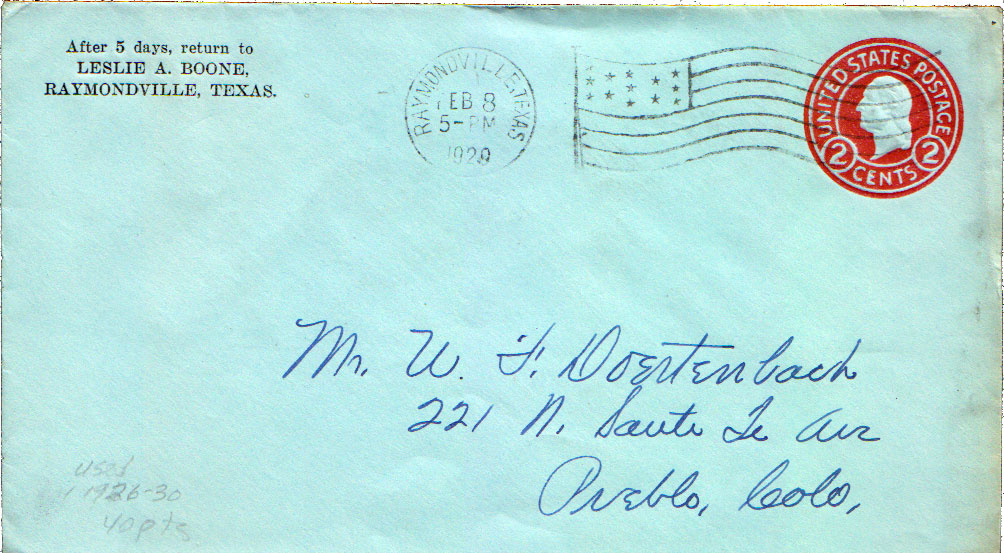 After 5 days, return to
LESLIE A. BOONE,
RAYMONDVILLE, TEXAS.
RAYMONDVILLE, TEXAS
FEB 8
5-PM
1929
UNITED STATES POSTAGE
2 CENTS 2
Mr. W. F. Doertenbach
221 N. Sante Fe Ave
Pueblo, Colo,
used
1926-30
40pts